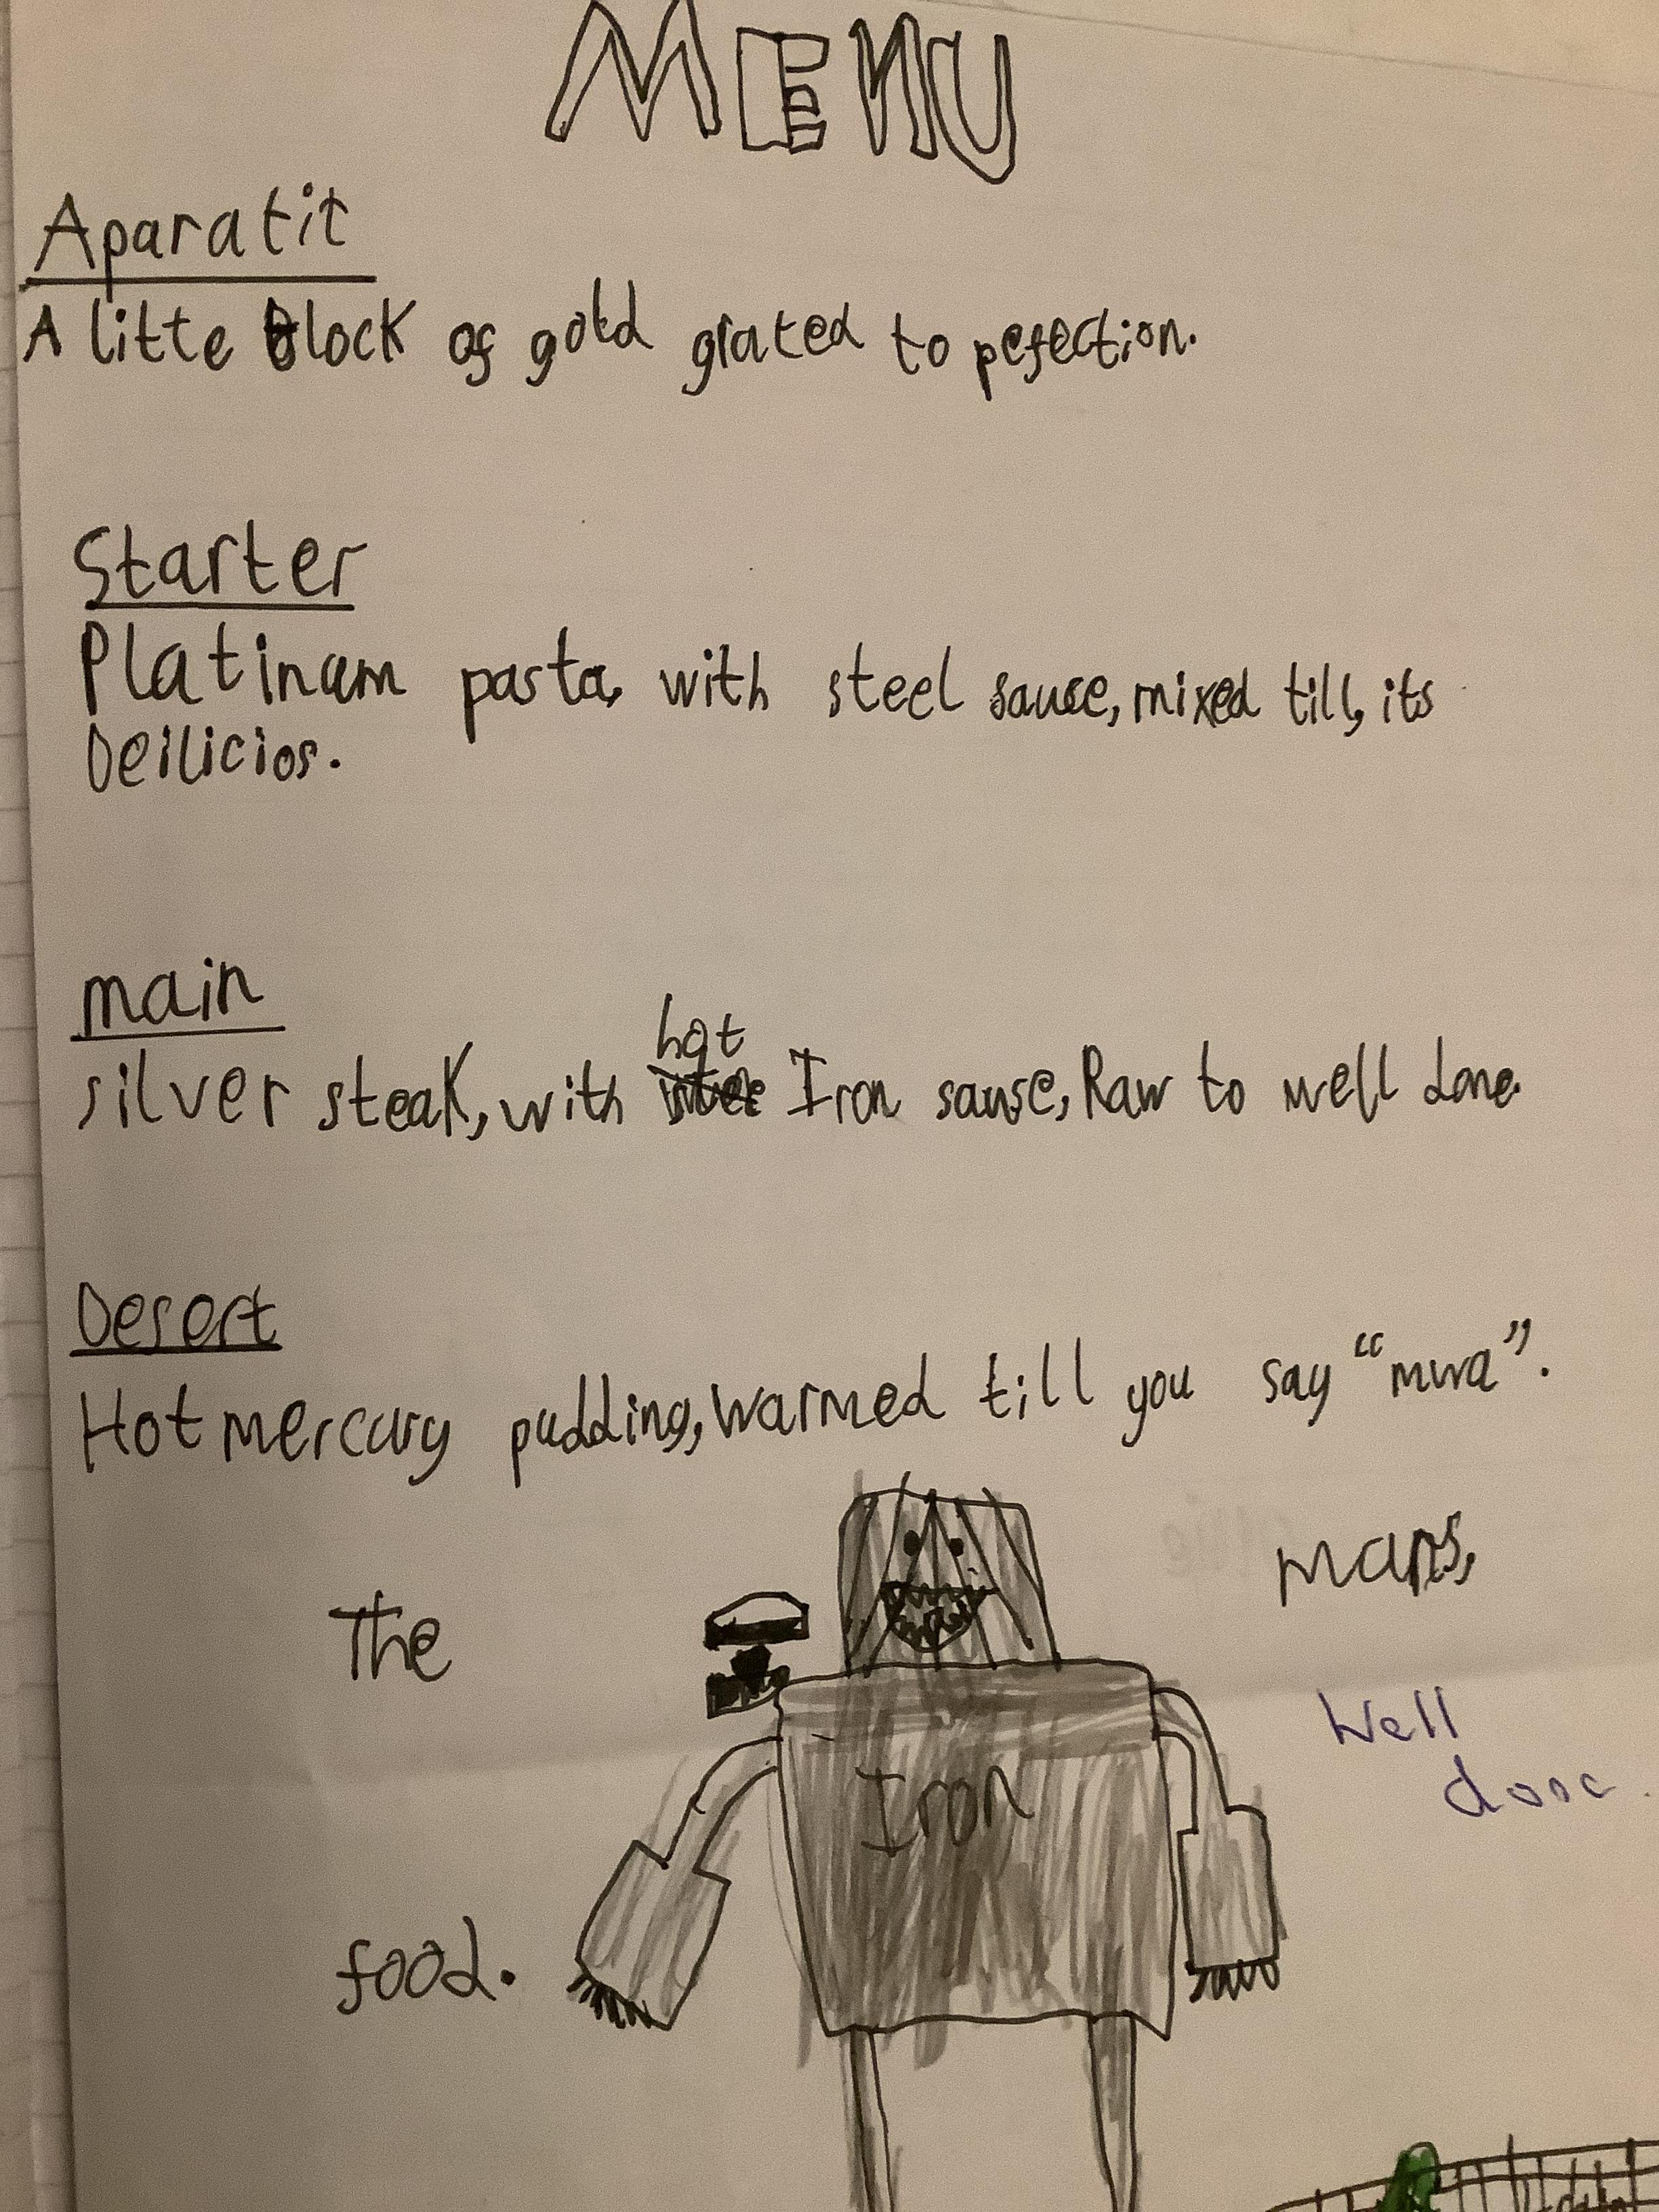 MENU
Aparatit
A litte Block of gold grated to pefection.
Starter
Platinum pasta, with steel sause, mixed till, its
Deilicios.
main
hot
silver steak, with Iron sause, Raw to well done.
Desert
Hot mercury pudding, warmed till you say “mwa”.
The
mans,
Well
done.
Iron
food.